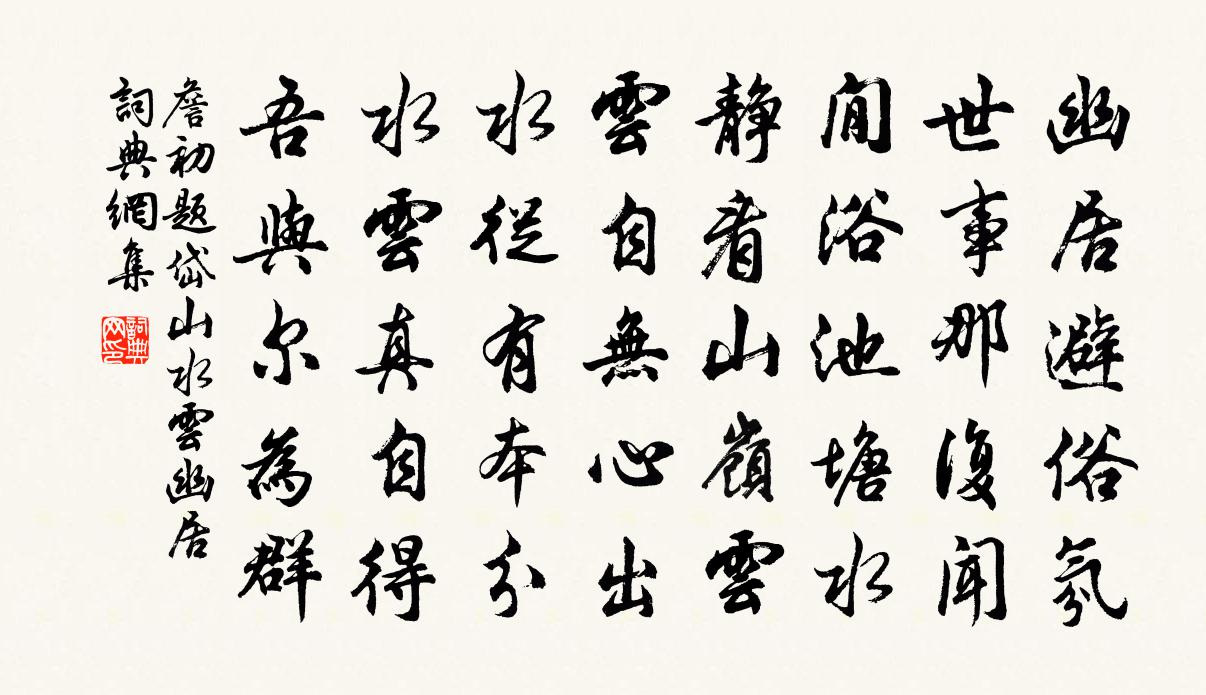 幽居避俗氛
世事那復聞
閒浴池塘水
靜看山嶺雲
雲自無心出
水從有本分
水雲真自得
吾與尔為群
詹初題岱山水雲幽居
詞典網集
詞典網印